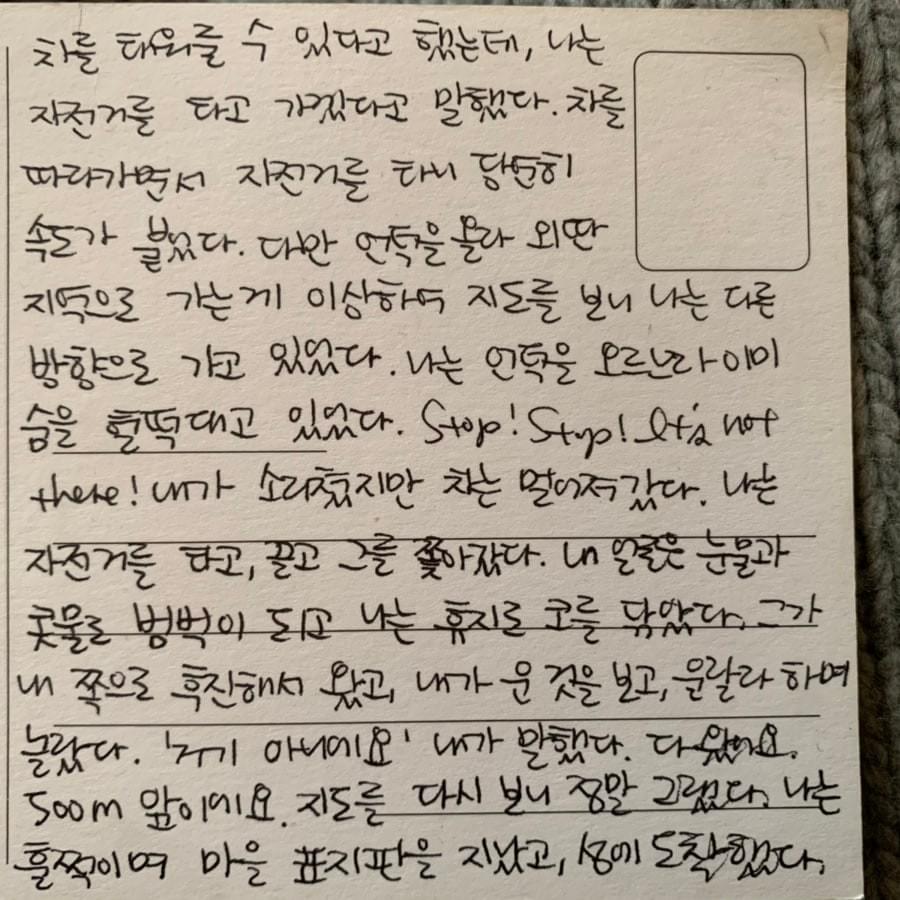 차를 태워줄 수 있다고 했는데, 나는
자전거를 타고 가겠다고 말했다. 차를
따라가면서 자전거를 타니 당연히
속도가 붙었다. 다만 언덕을 올라 외딴
지역으로 가는게 이상하여 지도를 보니 나는 다른
방향으로 가고 있었다. 나는 언덕을 오르느라 이미
숨을 헐떡대고 있었다. Stop! Stop! It's not
there! 내가 소리쳤지만 차는 멀어져갔다. 나는
자전거를 타고, 끌고 그를 쫓아갔다. 내 얼굴은 눈물과
콧물로 범벅이 되고 나는 휴지로 코를 닦았다. 그가
내 쪽으로 후진해서 왔고, 내가 운 것을 보고, 울랄라 하며
놀랐다. '거기 아니에요' 내가 말했다. 다 왔어요.
500m 앞이에요. 지도를 다시 보니 정말 그랬다. 나는
훌쩍이며 마을 표지판을 지났고, 성에 도착했다.